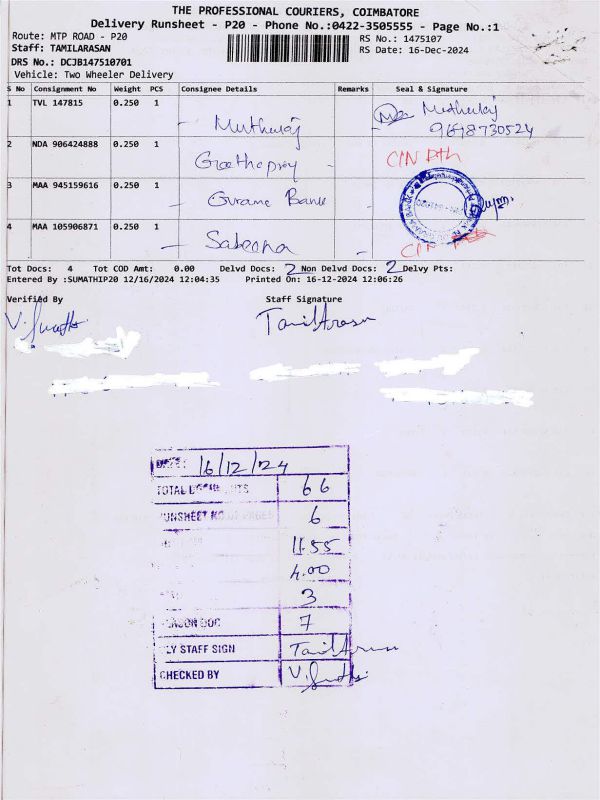 THE PROFESSIONAL COURIERS, COIMBATORE
Delivery Runsheet - P20 - Phone No.:0422-3505555 - Page No.:1
Route: MTP ROAD - P20
RS No.: 1475107
Staff: TAMILARASAN
RS Date: 16-Dec-2024
DRS No.: DCJB147510701
Vehicle: Two Wheeler Delivery
S No Consignment No Weight PCS Consignee Details Remarks Seal & Signature
1 TVL 147815 0.250 1 Muthuraj Muthuraj
9698730524
2 NDA 906424888 0.250 1
3 MAA 945159616 0.250 1 Bank
4 MAA 105906871 0.250 1 Sabeena
Tot Docs: 4 Tot COD Amt: 0.00 Delvd Docs: 2 Non Delvd Docs: 2 Delvy Pts:
Entered By :SUMATHIP20 12/16/2024 12:04:35 Printed On: 16-12-2024 12:06:26
Verified By Staff Signature
TamilArasan
DATE: 16/12/24
TOTAL 66
RUNSHEET NO.OF PAGES 6
11.55
4.00
3
7
STAFF SIGN TamilArasan
CHECKED BY